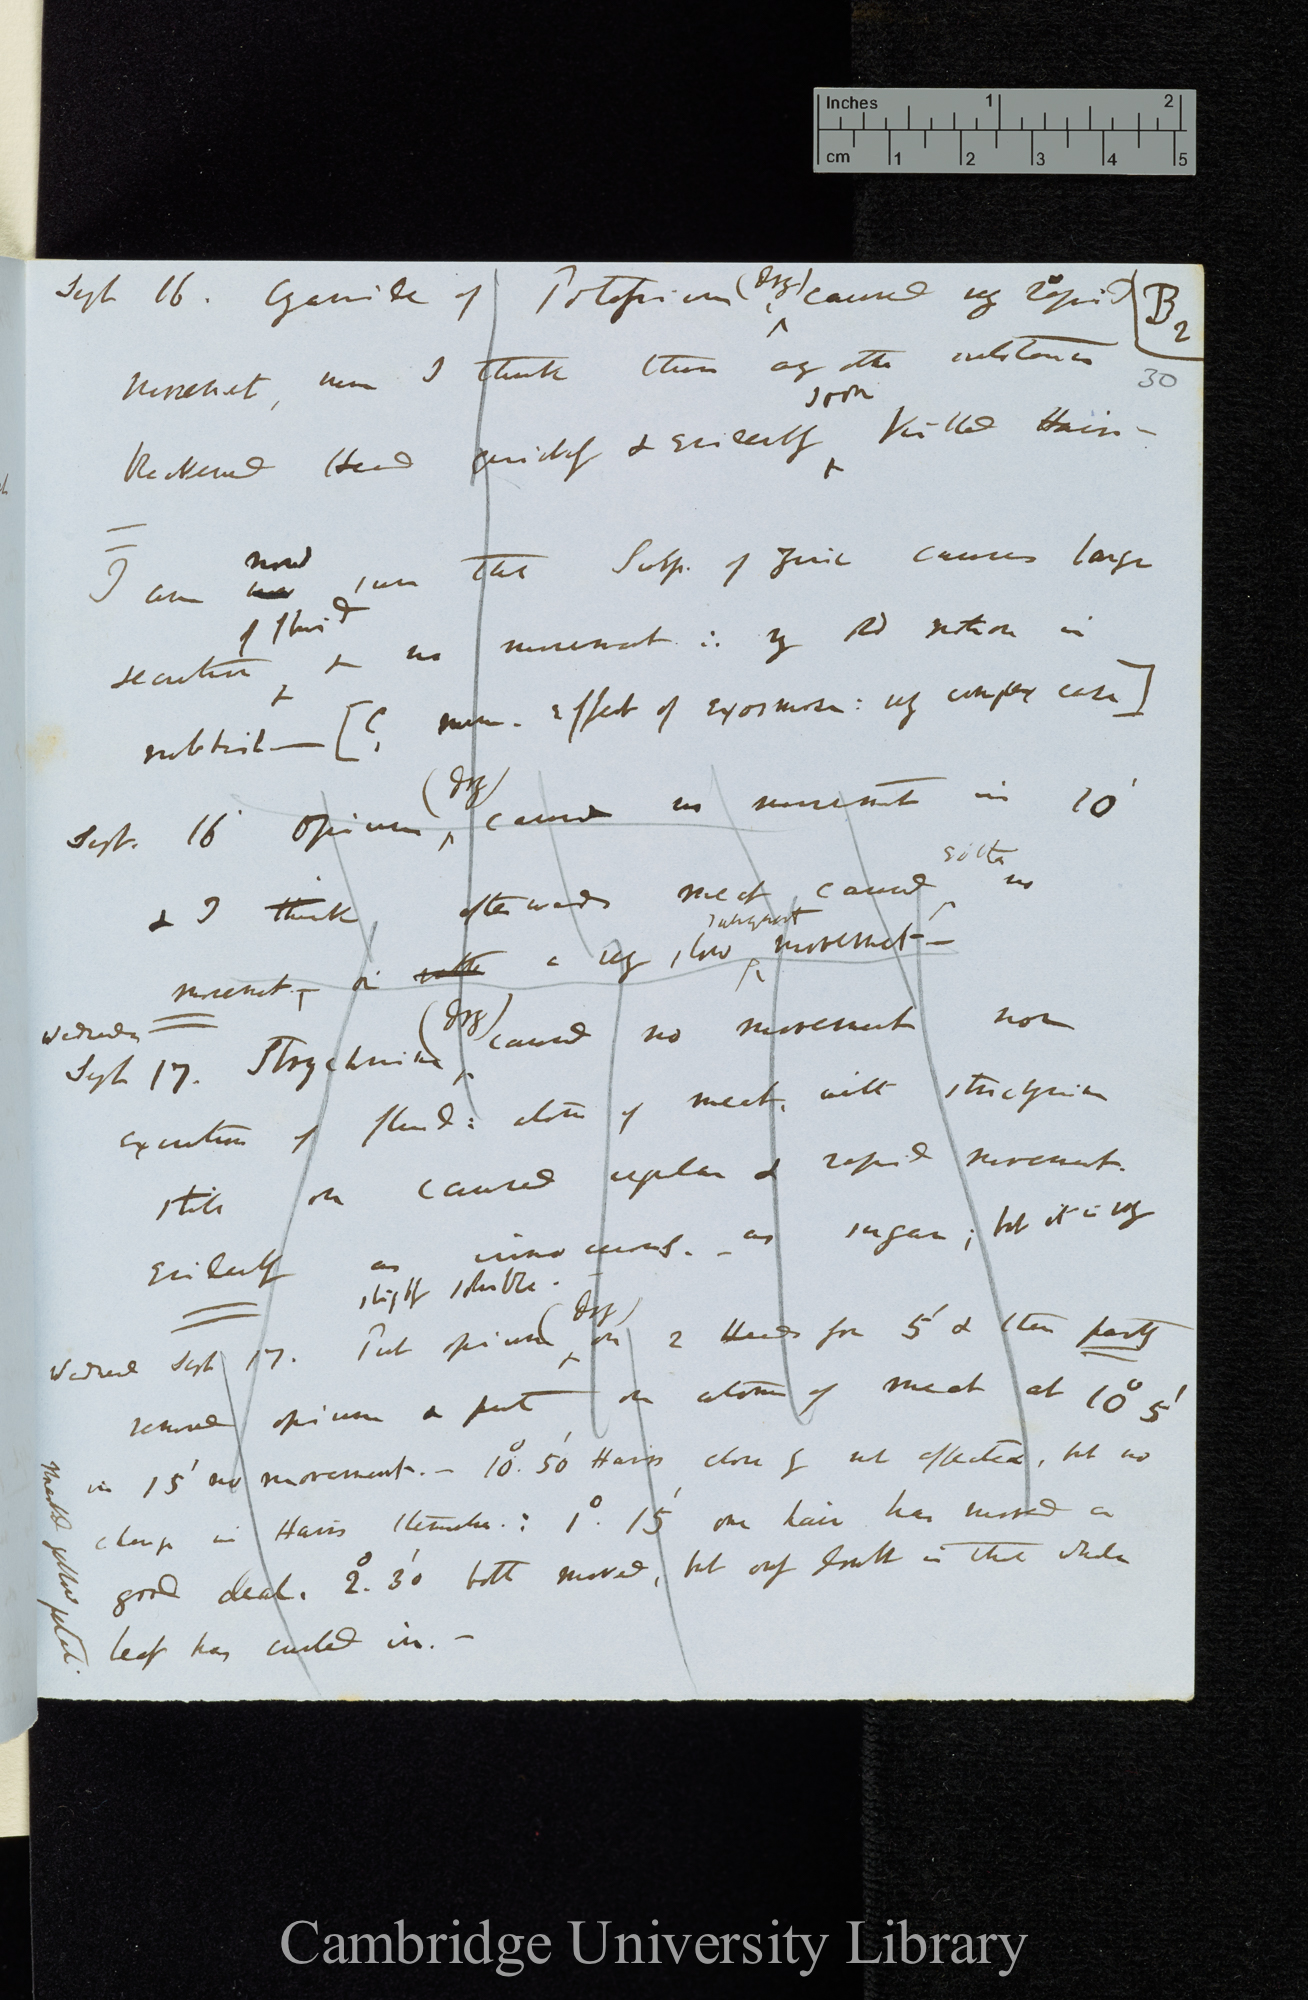 Inches 1 2
cm 1 2 3 4 5
Sept 16. Cyanide of Potassium (dry) caused very rapid
B2
30
movement, more I think than any other substance
blackened Head quickly & evidently soon killed Hairs —
I am now sure that Sulp. of Zinc causes large
secretion of fluid & no movement ∴ my old notion is
[? mere effect of exosmose: very complex case]
Sept. 16 Opium (dry) caused no movement in 10'
& I think afterwards meat caused either no
movement, or a very slow subsequent movement —
Wednesday
Sept 17. Strychnine (dry) caused no movement nor
excretion of fluid: atom of meat, with strychnine
still on caused regular & rapid movement.
Evidently as innocuous — as sugar; but it is very
slightly soluble. —
Wednesd Sept 17. Put opium (dry) on 2 Heads for 5' & then partly
removed opium & put on atoms of meat at 10° 5'
in 15' no movement. — 10°. 50' Hairs close by not affected, but no
change in Hairs themselves: 1°. 15' one hair has moved a
good deal. 2°. 30' both moved, but only doubt is that whole
leaf has curled in. —
Cambridge University Library